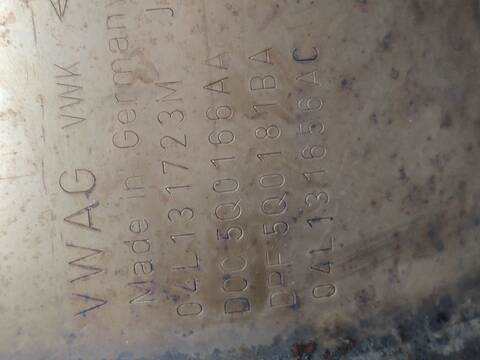 VWAG VWK
Made in Germany J
04L131723M
DOC 5Q0166AA
DPF 5Q0181BA
04L131656AC